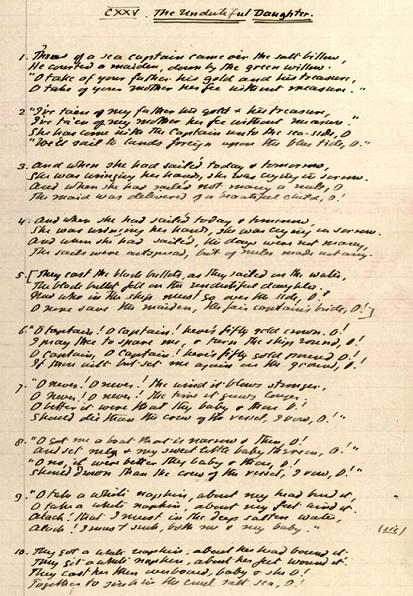 CXXV. The Undutiful Daughter.
1. There of a sea captain came o'er the salt billow,
He courted a maiden, down by the green willow.
"O take of your father his gold and his treasure,
O take of your mother her fee without measure."
2 "I've ta'en of my father his gold & his treasure,
I've ta'en of my mother her fee without measure."
She has come with the Captain unto the sea-side, O
"We'll sail to lands foreign upon the blue tide, O."
3. And when she had sailed today & tomorrow,
She was wringing her hands, she was crying in sorrow.
And when she had sailed not many a mile, O
The maid was delivered of a beautiful child, O!
4. And when she had sailed today & tomorrow,
She was wringing her hands, she was crying in sorrow.
And when she had sailed, the days were not many,
The sails were outspread, but of miles made not any.
5. [They cast the black bullets, as they sailed on the water,
The black bullet fell on the undutiful daughter.
Now who in the ship must go over the side, O!
O none save the maiden, the fair captain's bride, O!]
6. "O Captain! O Captain! here's fifty gold crown. O!
I pray thee to spare me, & turn the ship round, O!
O Captain, O Captain! here's fifty gold pound O!
If thou wilt but set me again on the ground, O!
7. "O never! O never! the wind it blows stronger,
O never! O never! the time it grows longer;
O better it were that thy baby & thou, O!
Should die than the crew of the vessel, I vow, O!"
8. "O get me a boat that is narrow & thin, O!
And set me & my sweet little baby therein, O!"
"O no, it were better thy baby & thou, O!
Should drown than the crew of the vessel, I vow, O!"
9. "O take a white napkin, about my head bind it,
O take a white napkin, about my feet wind it.
Alack! that I must in the deep salten water,
Alack! I must sink, both me & my baby." (sic)
10. They got a white napkin, about her head bound it,
They got a white napkin, about her feet wound it.
They cast her then overboard, baby & she O!
Together to sink in the cruel salt sea, O!